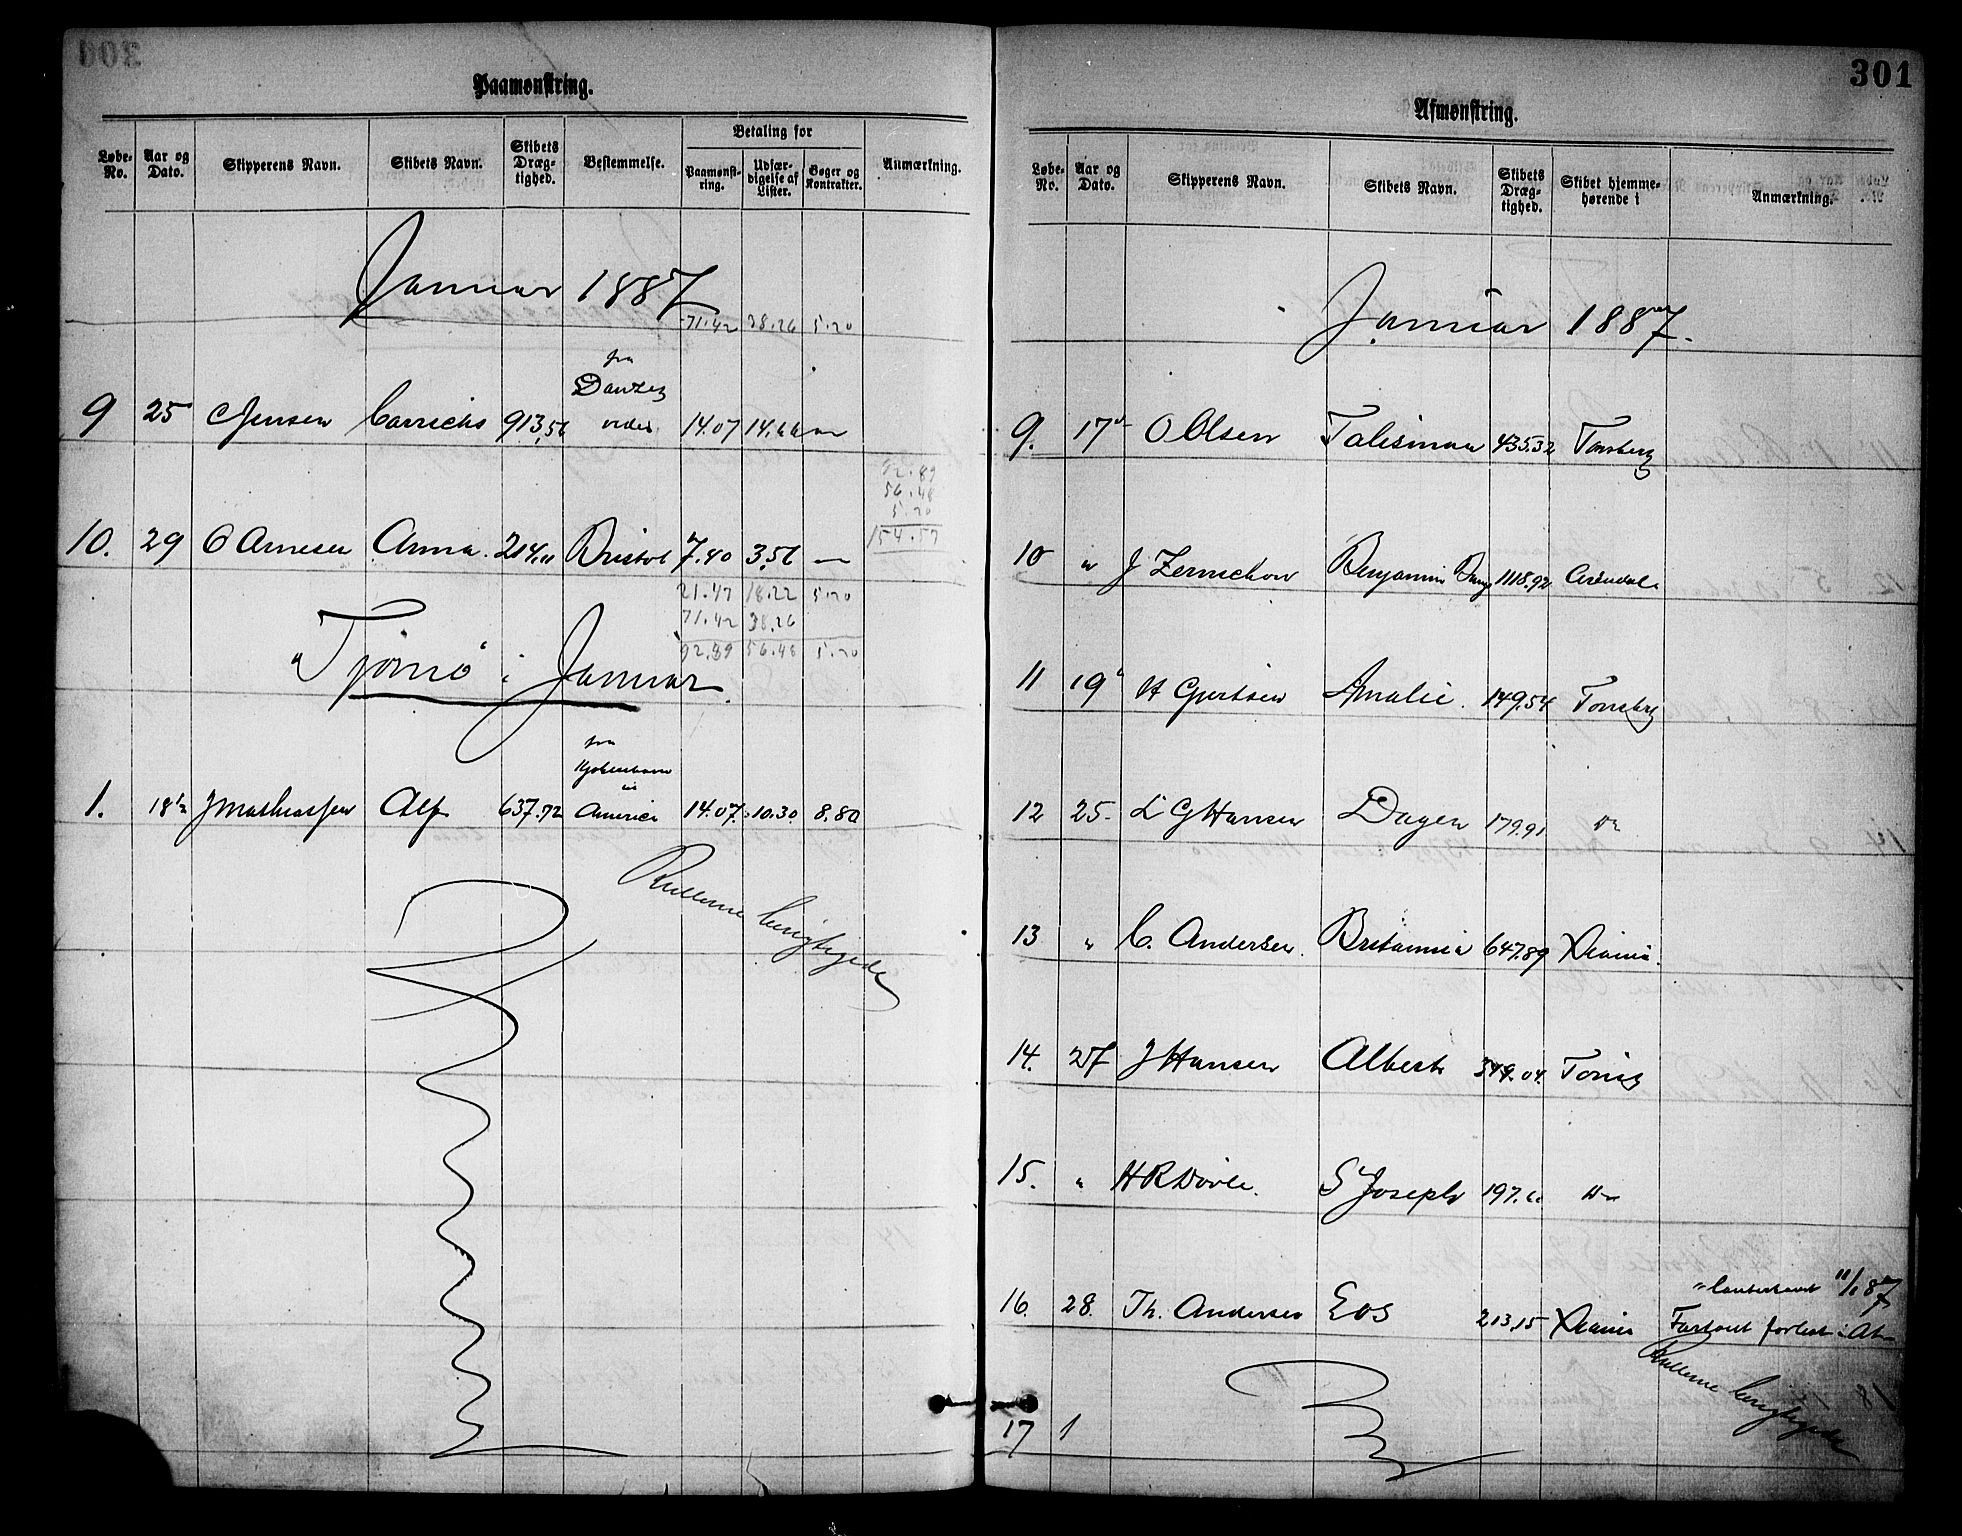 Paamønstring.
Løbe-No. Aar og Dato. Skipperens Navn. Skibets Navn. Skibets Dræg-tighed. Bestemmelse. Betaling for Paamønst-ring. Udfær-digelse af Lister. Bøger og Kontrakter. Anmærkning.
Januar 1887
71.42 38.26 5.20
fra
Danzig
9 25 C Jensen 913,56 videre 14.07
92.89
56.48
5.20
154.57
10. 29 O Arnesen Anna. 214,11 Bristol 7.40 3,56 —
21.47 18.22 5.20
71.42 38.26
92.89 56.48 5.20
"Tjømø" i Januar.
fra
Kjøbenhavn
til
1. 18 1/2 J Mathiassen Alf 637.72 America 14.07. 10.30. 8.80
Rullerne berigtigede
301
Afmønstring.
Løbe-No. Aar og Dato. Skipperens Navn. Skibets Navn. Skibets Dræg-tighed. Skibet hjemme-hørende i Anmærkning.
Januar 1887.
9. 17 O Olsen Talisman 435.32 Tønsberg
10 " J Zernichow Benjamin Bang 1118.92 Arendal
11 19 H Gjertsen Amalie. 149.54 Tønsberg
12 25. L G Hansen Dagen 179.91 Do
13 " C. Andersen. Britannia 647.89 Xiania.
14. 27 J Hansen Albert 349.04. Tønsbg
15. " H R Dovle. St Joseph 197. Do
16. 28. Th. Andersen Eos 213,15 Xiania
11/1 87
Fartøiet forlist
Rullerne berigtigede
17 1